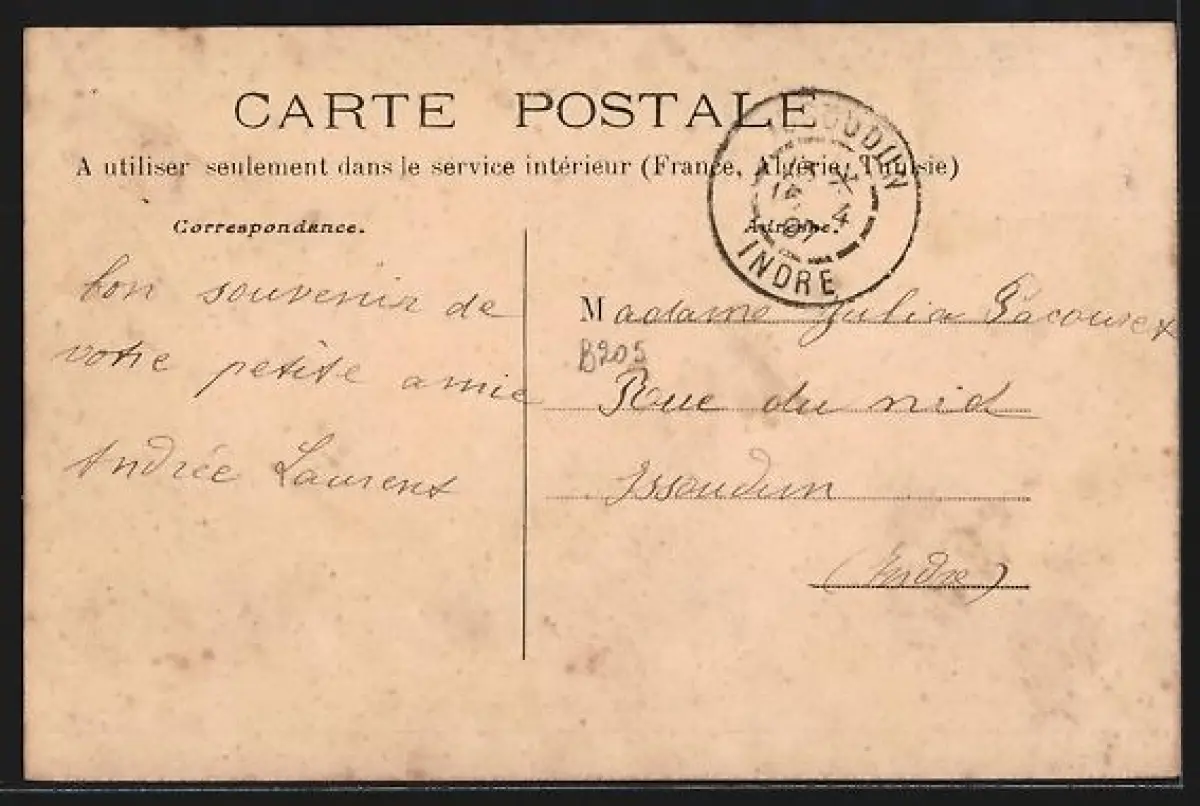 CARTE POSTALE
A utiliser seulement dans le service intérieur (France, Algérie, Tunisie)
Correspondance.
bon souvenir de
votre petite amie
Andrée Laurent
ISSOUDUN
4
07
INDRE
Adresse.
Madame Julia
B205
Rue du nid
Issoudun
(Indre)